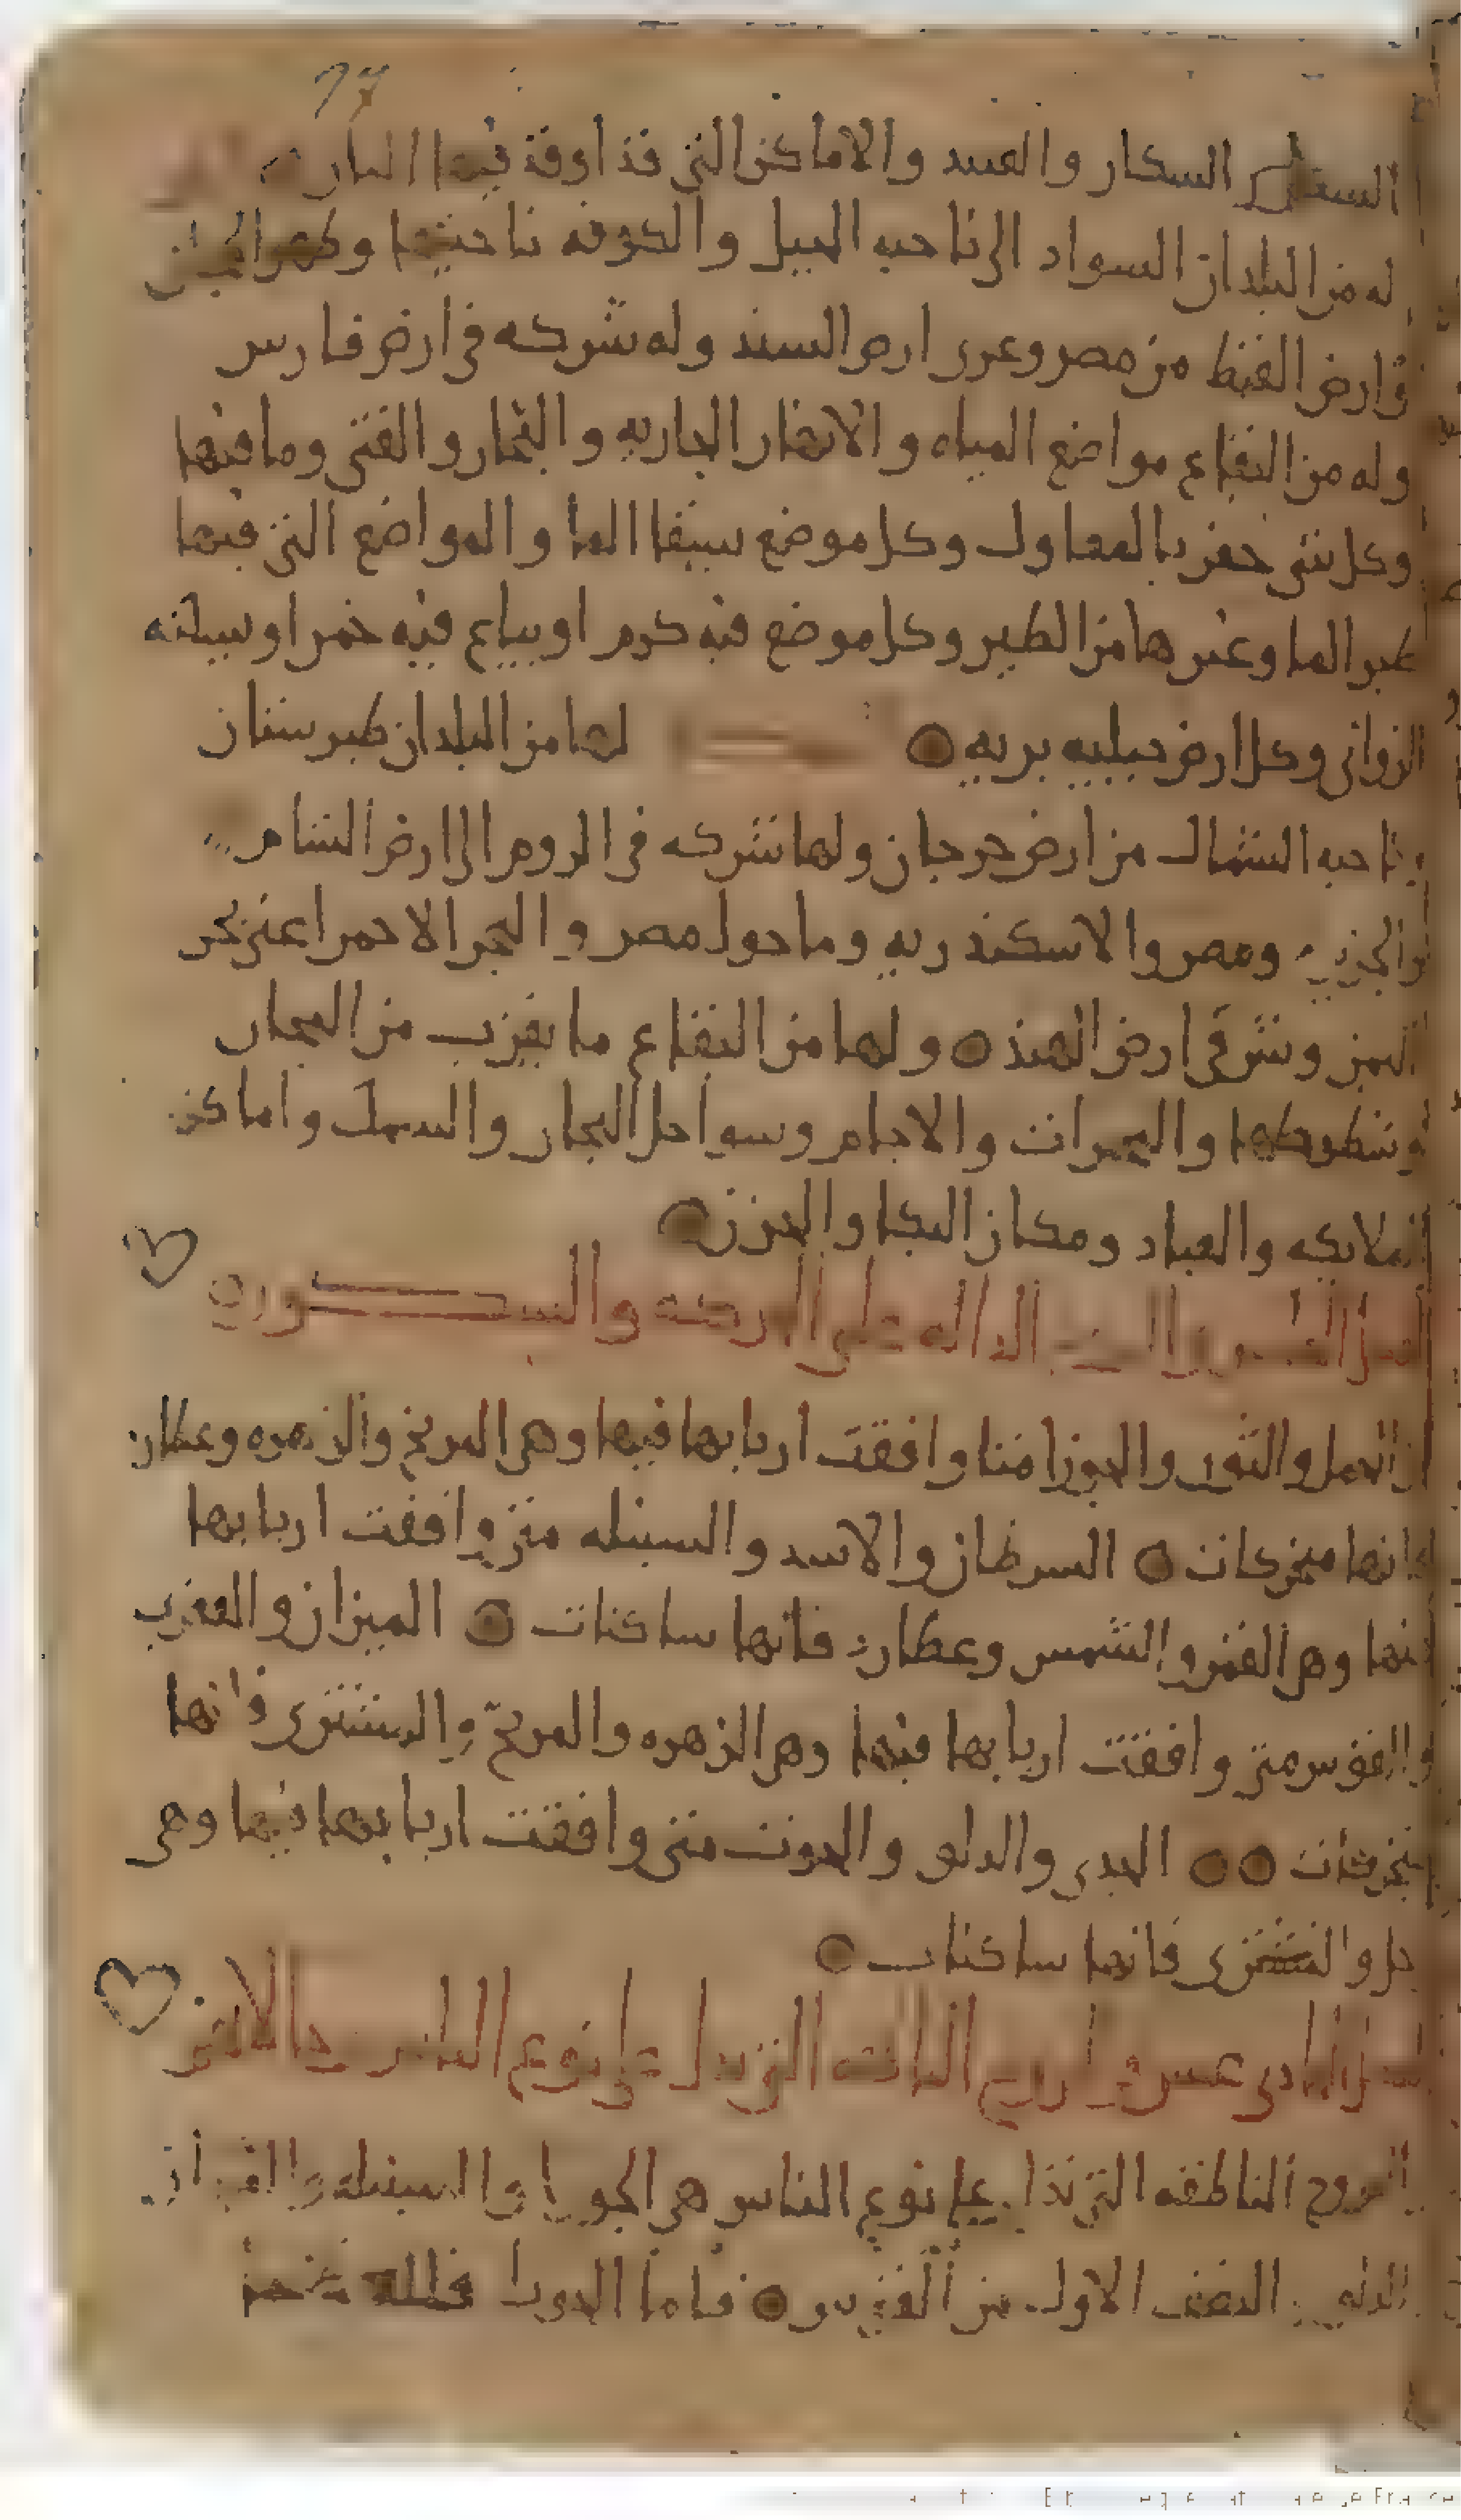 السكار والعبيد والاماكن التي قد اوقد فيها النار
له من البلدان السواد الى ناحيه الجبل والكوفه ناحيتها
وارض القبط من مصر وغربي ارض السند وله شركه في ارض فارس
وله من البقاع مواضع المياه والانهار الجاريه والبحار والقنى وما فيها
وكل شي حفر بالمعاول وكل موضع سقا الما والمواضع التي فيها
طير الما وغيرها من الطير وكل موضع فيه كرم او يباع فيه خمر او يسكنه
الزواني وكل ارض جبليه بريه لها من البلدان طبرستان
وناحيه الشمال من ارض جرجان ولها شركه في الروم الى ارض الشام
والجزيره ومصر والاسكندريه وما حول مصر والبحر الاحمر اعني بحر
اليمن وشرقي ارض الهند ولها من البقاع ما يقرب من البحار
وشطوطها والبحيرات والاجام وسواحل البحار والسمك واماكن
الملايكه والعباد ومكان البكا والحزن
الداله على الحركه والسكون
ان الحمل والثور والجوزا متا وافقت اربابها فيها وهي المريخ والزهره وعطارد
فانها متحركات السرطان والاسد والسنبله متى وافقت اربابها
فيها وهي القمر والشمس وعطارد فانها ساكنات الميزان والعقرب
والقوس متى وافقت اربابها فيها وهي الزهره والمريخ والمشتري فانها
متحركات الجدي والدلو والحوت متى وافقت اربابها فيها وهي
زحل والمشتري فانها ساكنات
التي تدل على نوع الناس
البروج الناطقه التي تدل على نوع الناس هي الجوزا والسنبله والميزان
النصف الاول من القوس فاما الجوزا فلله